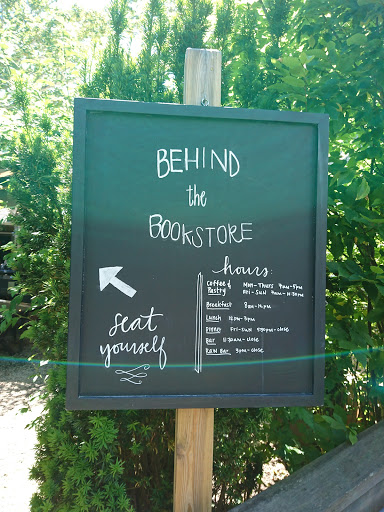 BEHIND
the
BOOKSTORE
hours:
Coffee &
Pastry
MON-THURS 7am-5pm
FRI-SUN 7am-11:30pm
Breakfast 8am-12pm
Lunch 12pm-5pm
Dinner FRI-SUN 5:30pm-close
BAR 11:30am-close
RAW BAR 3pm-close
seat
yourself